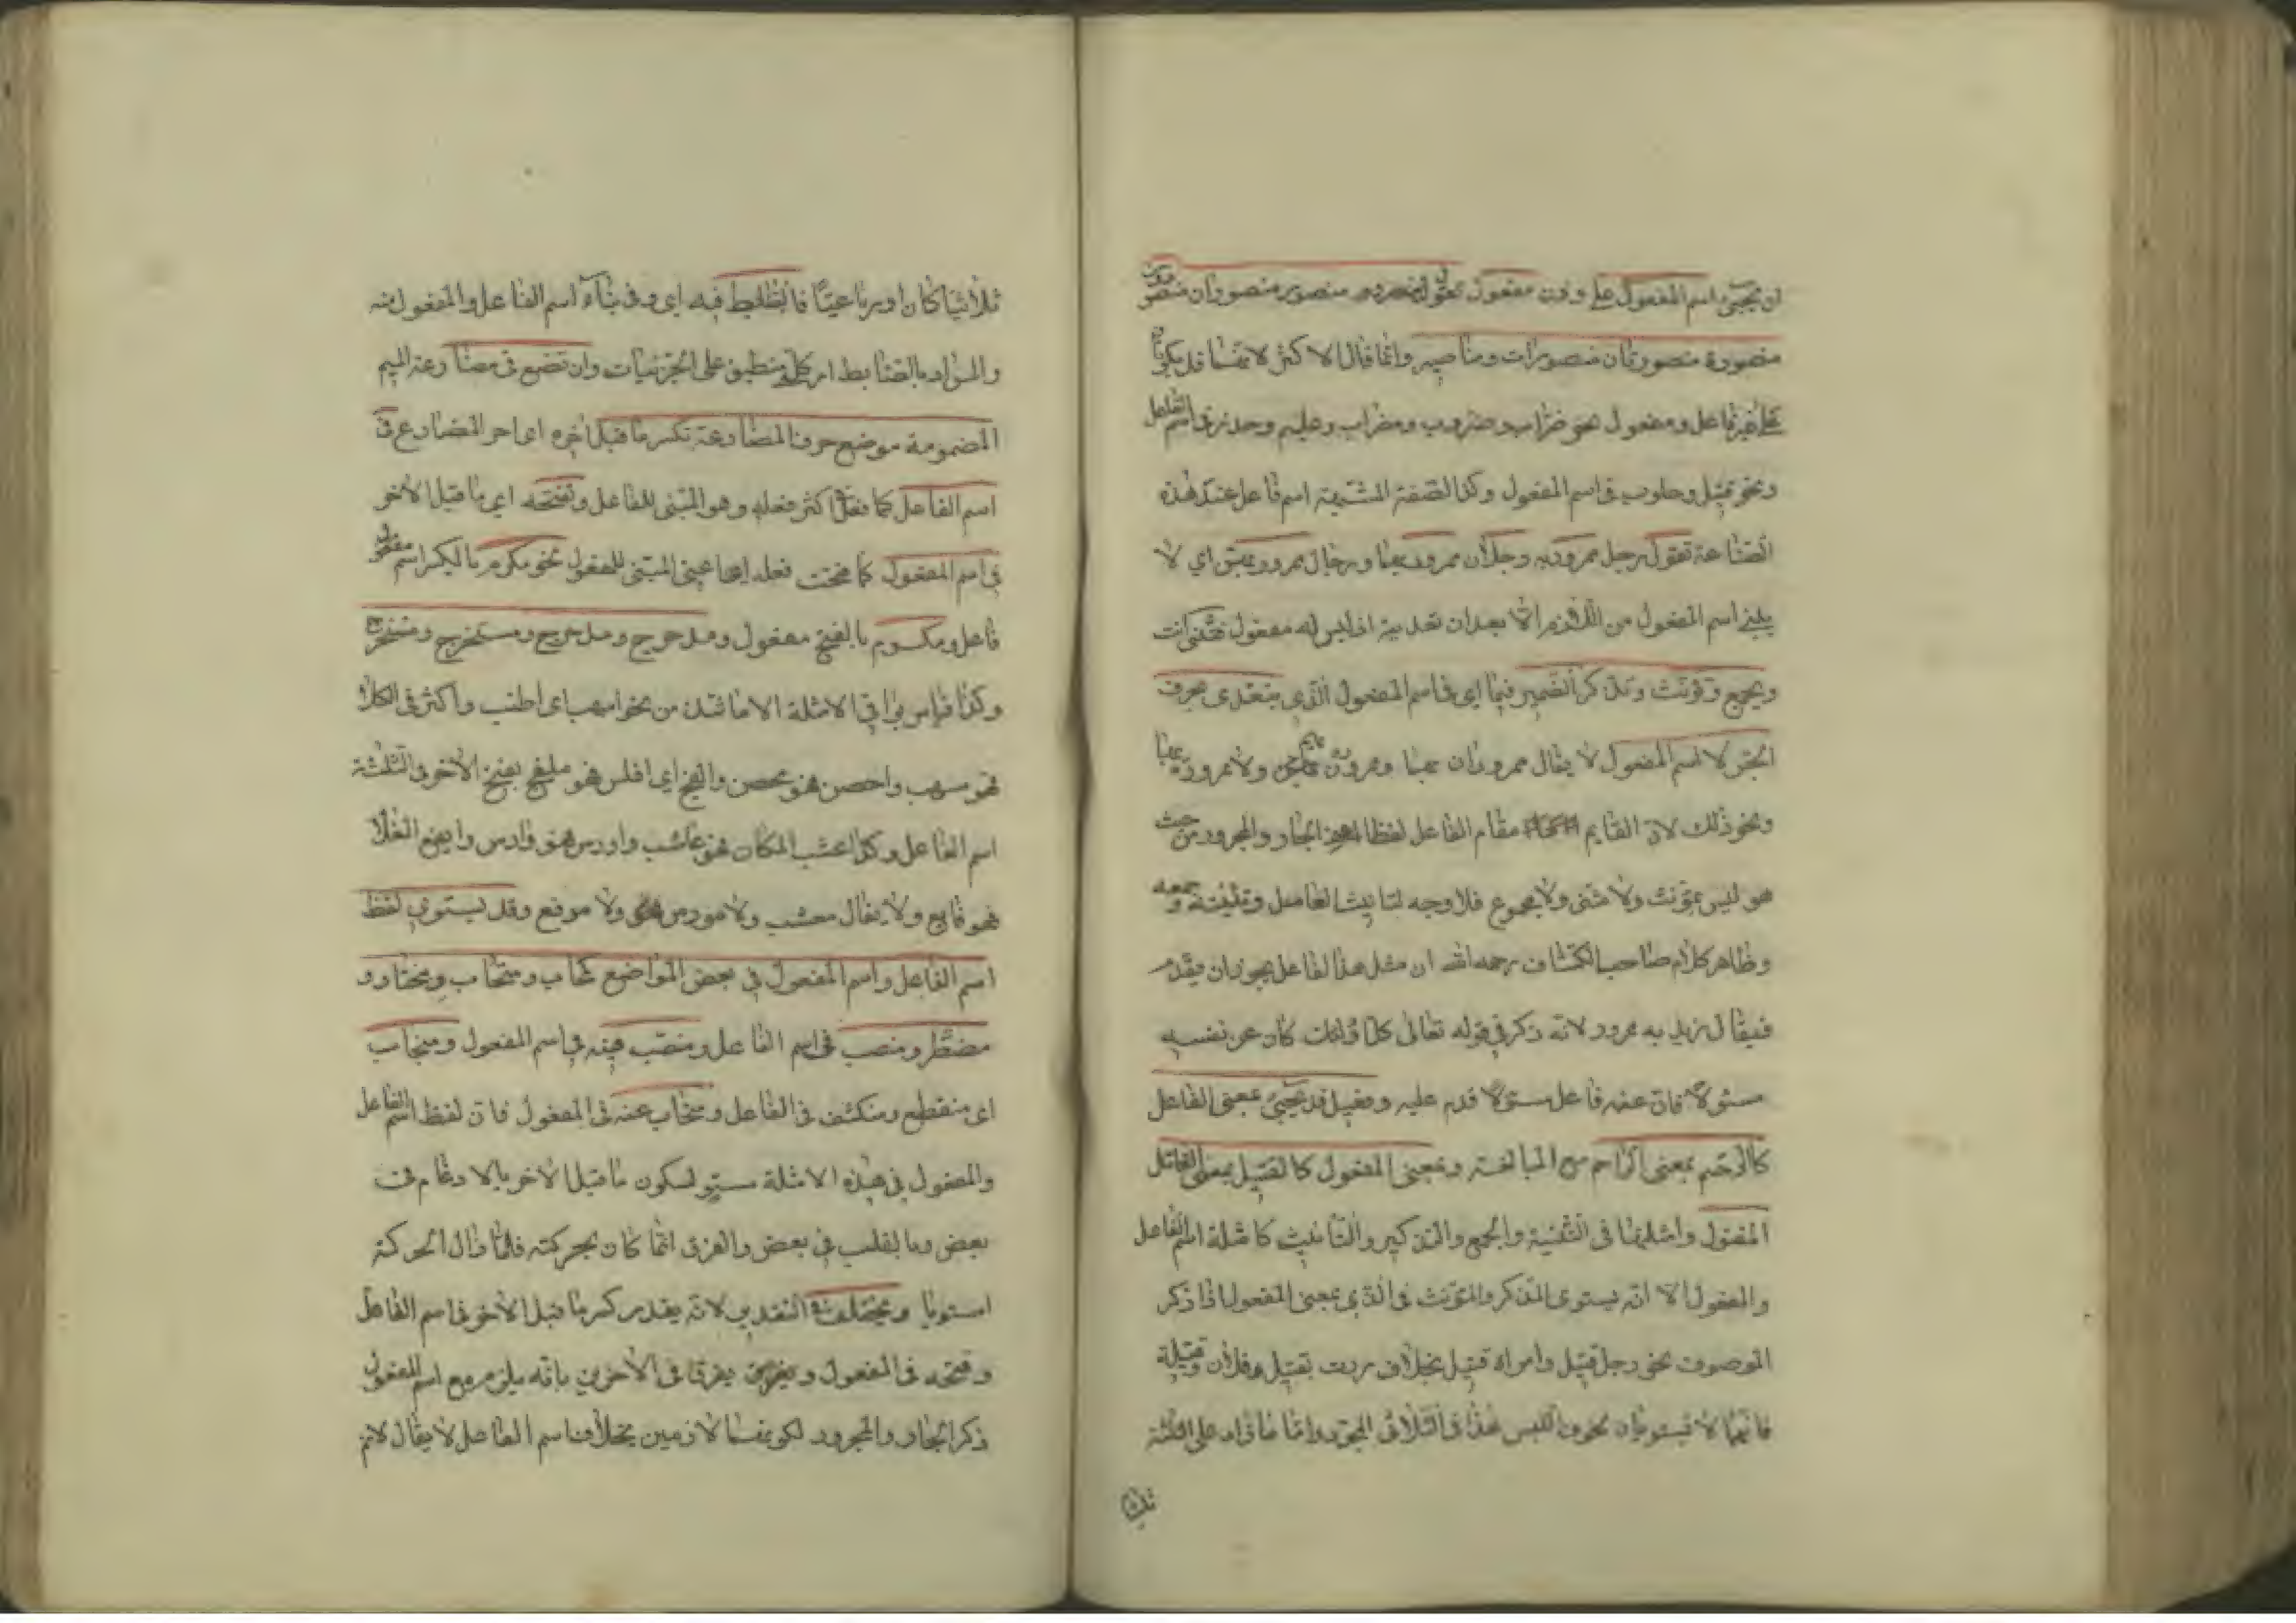 ان يجيئ اسم المفعول على وزن مفعول تقول منصور منصوران منصورون
منصورة منصورتان منصورات ومناصير وانما قال الاكثر لانهما قد يكونان
على غير فاعل ومفعول نحو ضراب وضروب ومضراب وعليم وحذر في اسم الفاعل
ونحو قتيل وحلوب في اسم المفعول وكذا الصفة المشبهة اسم فاعل عند هذه
الصناعة تقول رجل ممرور به ورجلان ممرور بهما ورجال ممرور بهم اي لا
يبنى اسم المفعول من اللازم الا بعد ان تعديه اذ ليس له مفعول فتثنى انت
ويجمع وتؤنث وتذكر الضمير فيما اي في اسم المفعول الذي يتعدى بحرف
الجر لا اسم المفعول لا يقال ممروران بهما وممرورون بهم ولا ممرورة بها
ونحو ذلك لان القايم مقام الفاعل لفظا اعني الجار والمجرور من حيث
هو ليس بمؤنث ولا مثنى ولا مجموع فلا وجه لتانيث العامل وتثنيته وجمعه
وظاهر كلام صاحب الكشاف رحمه الله ان مثل هذا الفاعل يجوز ان يقدم
فيقال زيد به ممرور لانه ذكر في قوله تعالى كل اولئك كان عن نفسه
مسئولا فان عنه فاعل مسئولا قدم عليه وفعيل قد يجيئ بمعنى الفاعل
كالرحيم بمعنى الراحم مع المبالغة وبمعنى المفعول كالقتيل بمعنى القاتل
المقتول وامثلتهما في التثنية والجمع والتذكير والتأنيث كامثلة اسم الفاعل
والمفعول الا انه يستوى المذكر والمؤنث في الذي بمعنى المفعول اذا ذكر
الموصوف نحو رجل قتيل وامراة قتيل بخلاف مررت بقتيل فلان وقتيلة
فانهما لا يستويان لخوف اللبس هذا في الثلاثى المجرد واما ما زاد على الثلثة
ثلاثيا كان او رباعيا فالضابط فيه اي وفي بناء اسم الفاعل والمفعول منه
والمراد بالضابط امر كلي منطبق على الجزئيات وان تضع في مضارعة الميم
المضمومة موضع حرف المضارعة تكسر ما قبل اخره اى اخر المضارع في
اسم الفاعل كما فعل اكثر فعله وهو المبنى للفاعل وتفتحه اي ما قبل الاخر
في اسم المفعول كما فتحت فعله اعنى المبنى للمفعول نحو مكرم بالكسر اسم مفعول
فاعل ومكرم بالفتح مفعول ومدحرج ومدحرج ومستخرج ومستخرج
وكذا قياس بواقى الامثلة الا ما شذ من نحو اسهب اى اطنب واكثر في الكلام
فهو مسهب واحصن فهو محصن والفج اى افلس فهو ملفج بفتح الاخر في الثلثة
اسم الفاعل وكذا اعشب المكان فهو عاشب واورس فهو وارس وايفع الغلام
فهو يافع ولا يقال معشب ولا مورس ولا موفع وقد يستوي لفظ
اسم الفاعل واسم المفعول في بعض المواضع كمحاب ومتحاب ومختار و
مضطر ومنصب في اسم الفاعل ومنصب فيه في اسم المفعول ومنجاب
اى منقطع ومنكشف في الفاعل ومنجاب عنه في المفعول فان لفظ اسم الفاعل
والمفعول في هذه الامثلة مستو لسكون ما قبل الاخر بالادغام في
بعض وبالقلب في بعض والفرق انما كان بحركته فلما زال الحركة
استويا ويختلف في التقدير لانه يقدر كسر ما قبل الاخر في اسم الفاعل
وفتحه في المفعول ويفرق في الاخرين بانه يلزم مع اسم المفعول
ذكر الجار والمجرور لكونهما لازمين بخلاف اسم الفاعل لا يقال لانم